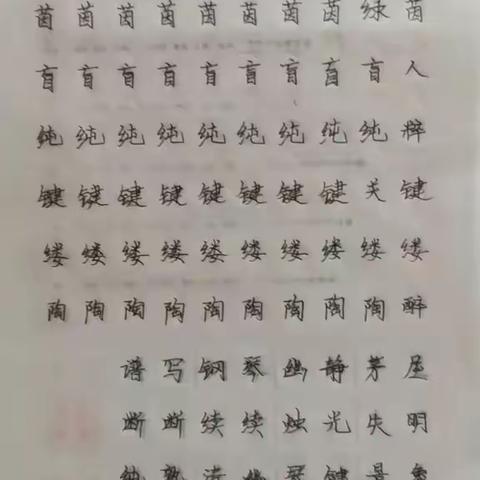 茵茵茵茵茵茵茵茵绿茵
盲盲盲盲盲盲盲盲盲人
纯纯纯纯纯纯纯纯纯粹
键键键键键键键键关键
缕缕缕缕缕缕缕缕缕缕
陶陶陶陶陶陶陶陶陶醉
谱写钢琴幽静茅屋
断断续续烛光失明
纯熟清幽琴键景象